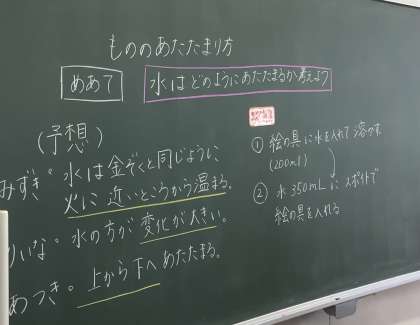 もののあたたまり方
めあて
水はどのようにあたたまるか考えよう
(予想)
みずき。水は金ぞくと同じように
火に近いところから温まる。
りいな。水の方が変化が大きい。
あつき。上から下へあたたまる。
① 絵の具に水を入れて溶かす
(200ml)
② 水350mLにスポイトで
絵の具を入れる